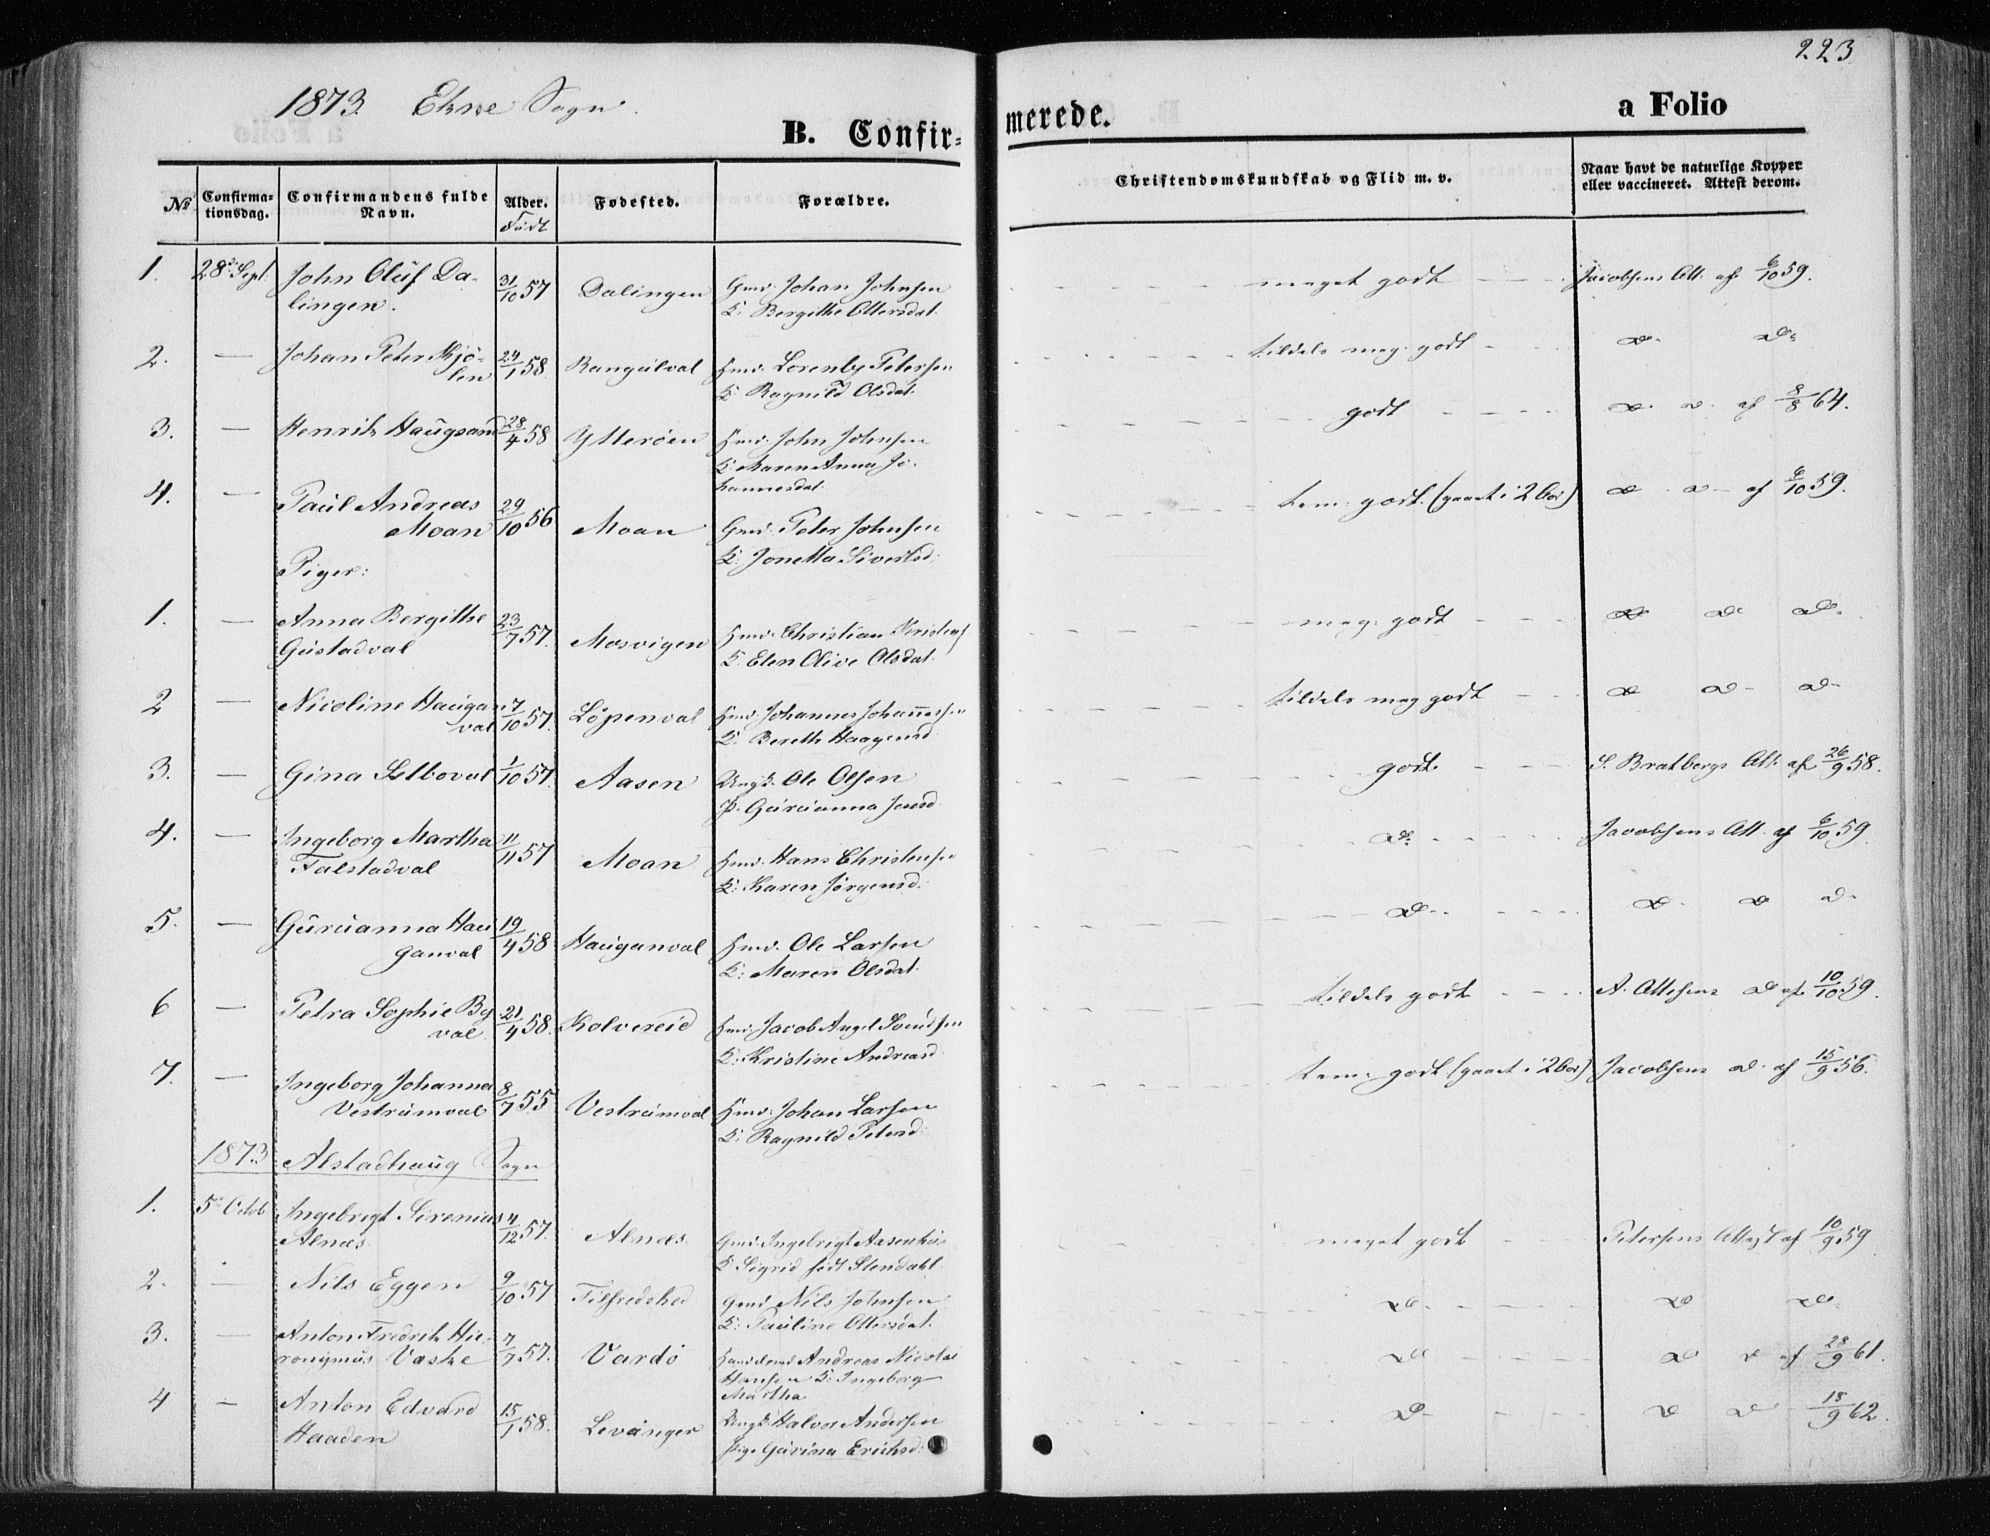 223
1873. Ekne Sogn.
B. Confirmerede.
a Folio
No
Confirma-
tionsdag.
Confirmandens fulde
Navn.
Alder.
Født
Fødested.
Forældre.
Christendomskundskab og Flid m. v.
Naar havt de naturlige Kopper
eller vaccineret. Attest derom.
1. 28de Sept. John Oluf Da-
lingen. 31/10 57 Dalingen Gmd. Johan Johnsen
K: Bergithe Ottersdat. meget godt Jacobsens Att. af 6/10 59.
2. — Johan Peter Kjö-
len 24/1 58 Rangulval Hmd. Lorents Petersen
K: Ragnild Olsdat. tildels meg. godt D. D.
3. — Henrik Haugsand 28/4 58 Ytteröen Hmd. John Johnsen
K: Maren Anna Jo-
hannesdat. godt D. D. af 8/8 64.
4. — Paul Andreas
Moan 29/10 56 Moan Gmd. Peter Johnsen
K: Jonetta Sivertsd. tem. godt. (gaaet i 2 Aar) D. D. af 6/10 59.
Piger:
1. — Anna Bergithe
Gustadval 23/7 57. Mosvigen Hmd. Christian Kristens.
K: Elen Olive Olsdat. meg. godt D. D. D.
2 — Nicoline Haugan
val 7/10 57. Löpenval Hmd. Johannes Johannesen
K: Bereth Haagensd. tildels meg godt D. D. D.
3. — Gina Selboval 1/10 57. Aasen Ungk. Ole Olsen
P. Guruanna Jensd. godt. S. Bratbergs Att. af 26/9 58.
4. — Ingeborg Martha
Falstadval 11/11 57 Moan Hmd. Hans Christensen
K: Karen Jørgensd. D. Jacobsens Att. af 6/10 59.
5. — Guruanna Hau
ganval 19/4 58 Hauganval Hmd. Ole Larsen
K: Maren Olsdat. D. D. D. D.
6 — Petra Sophie By
val 21/4 58. Kolvereid Hmd. Jacob Angel
K: Kristine Andreasd. tildels godt A. D. af 10/10 59.
7. — Ingeborg Johanna
Vestrumval 8/7 55 Vestrumval Hmd. Johan Larsen
K: Ragnild Petersd. tem. godt (gaaet i 2 Aar) Jacobsens D. af 15/9 56.
1873 Alstadhaug Sogn
1. 5te Octob Ingebrigt Sirenius
Alnæs 4/12 57. Alnæs Gmd. Ingebrigt
K. Sigrid født Stendahl. meget godt Petersens Attest af 10/9 59
2. — Nils Eggen 9/10 57 Tilfredshed Gmd. Nils Johnsen
K: Pauline Ottersdat. D. D. D.
3. — Anton Fredrik Hie-
ronymus Vaske 7/7 57. Vardö Andreas Nicolai
Hansen K: Ingeborg
Martha D D D af 28/9 61.
4 — Anton Edvard
Haaden 15/1 58. Levanger Ungk. Halvor Andersen
Pige Gurina Erichsd. D D D 18/9 62.